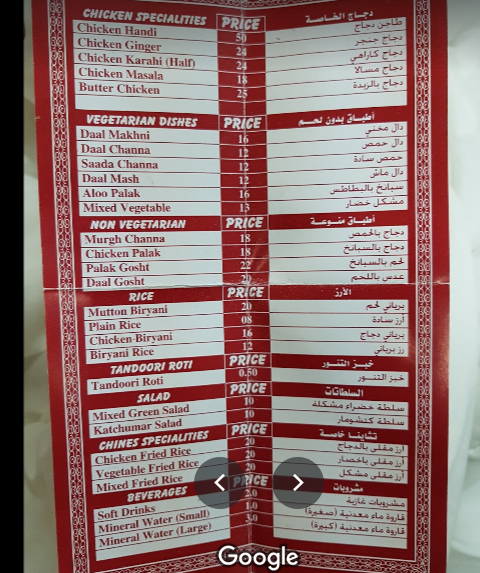 CHICKEN SPECIALITIES PRICE دجاج الخاصة
Chicken Handi 50 طاجن دجاج
Chicken Ginger 24 دجاج جنجر
Chicken Karahi (Half) 24 دجاج كاراهي
Chicken Masala 18 دجاج مسالا
Butter Chicken 25 دجاج بالزبدة
VEGETARIAN DISHES PRICE أطباق بدون لحم
Daal Makhni 16 دال مخني
Daal Channa 12 دال حمص
Saada Channa 12 حمص سادة
Daal Mash 12 دال ماش
Aloo Palak 16 سبانخ بالبطاطس
Mixed Vegetable 13 مشكل خضار
NON VEGETARIAN PRICE أطباق منوعة
Murgh Channa 18 دجاج بالحمص
Chicken Palak 18 دجاج بالسبانخ
Palak Gosht 22 لحم بالسبانخ
Daal Gosht 20 عدس باللحم
RICE PRICE الأرز
Mutton Biryani 20 برياني لحم
Plain Rice 08 أرز سادة
Chicken-Biryani 16 برياني دجاج
Biryani Rice 12 رز برياني
TANDOORI ROTI PRICE خبز التنور
Tandoori Roti 0.50 خبز التنور
SALAD PRICE السلطات
Mixed Green Salad 10 سلطة خضراء مشكلة
Katchumar Salad 10 سلطة كتشومار
CHINES SPECIALITIES PRICE تشاينا خاصة
Chicken Fried Rice 20 أرز مقلي بالدجاج
Vegetable Fried Rice 20 أرز مقلي باخضار
Mixed Fried Rice 20 أرز مقلي مشكل
BEVERAGES PRICE مشروبات
Soft Drinks 2.0 مشروبات غازية
Mineral Water (Small) 1.0 قاروة ماء معدنية (صغيرة)
Mineral Water (Large) 3.0 قاروة ماء معدنية (كبيرة)
Google